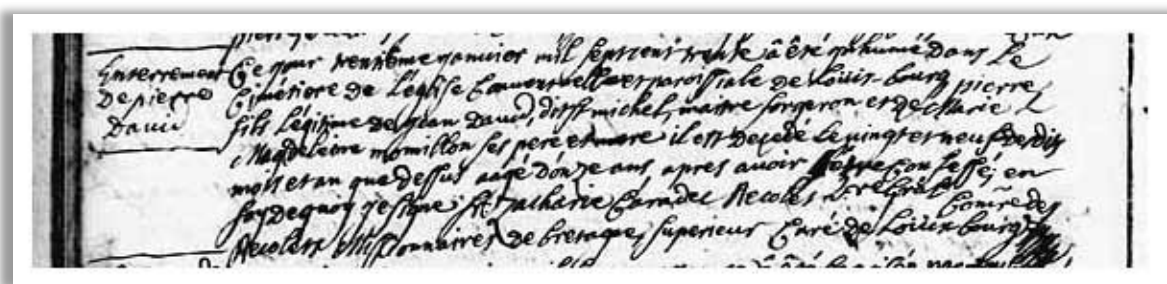 Enterrement
De pierre
David
Ce jour trentième janvier mil sept cent trente â êté inhumé dans le
Cimetiere de l'église Conventuelle et paroissiale de Louis-bourg pierre
fils légitime de jean David, dit st michel, maitre forgeron et de Marie
Magdeleine momillon ses pere et mere il est decedé le vingt et neuf des dits
mois et an que dessus aagé d'onze ans, apres avoir êtté Confessé, en
foy de quoy j'ai signé fr Zacharie Caradec Recolet
Recolets Missionnaires de bretagne, superieur Curé de Louisbourg